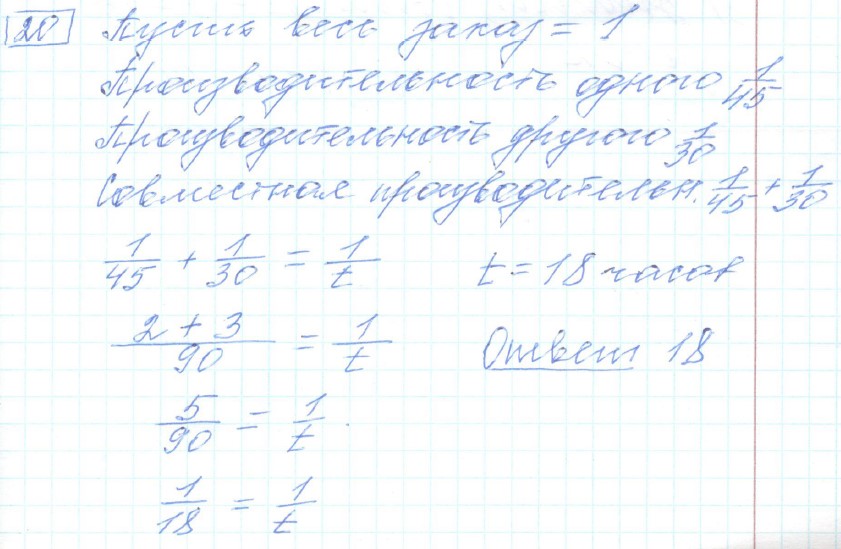 20 Пусть весь заказ = 1
Производительность одного 1/45
Производительность другого 1/30
Совместная производительн. 1/45 + 1/30
1/45 + 1/30 = 1/t t = 18 часов
2 + 3/90 = 1/t Ответ 18
5/90 = 1/t
1/18 = 1/t